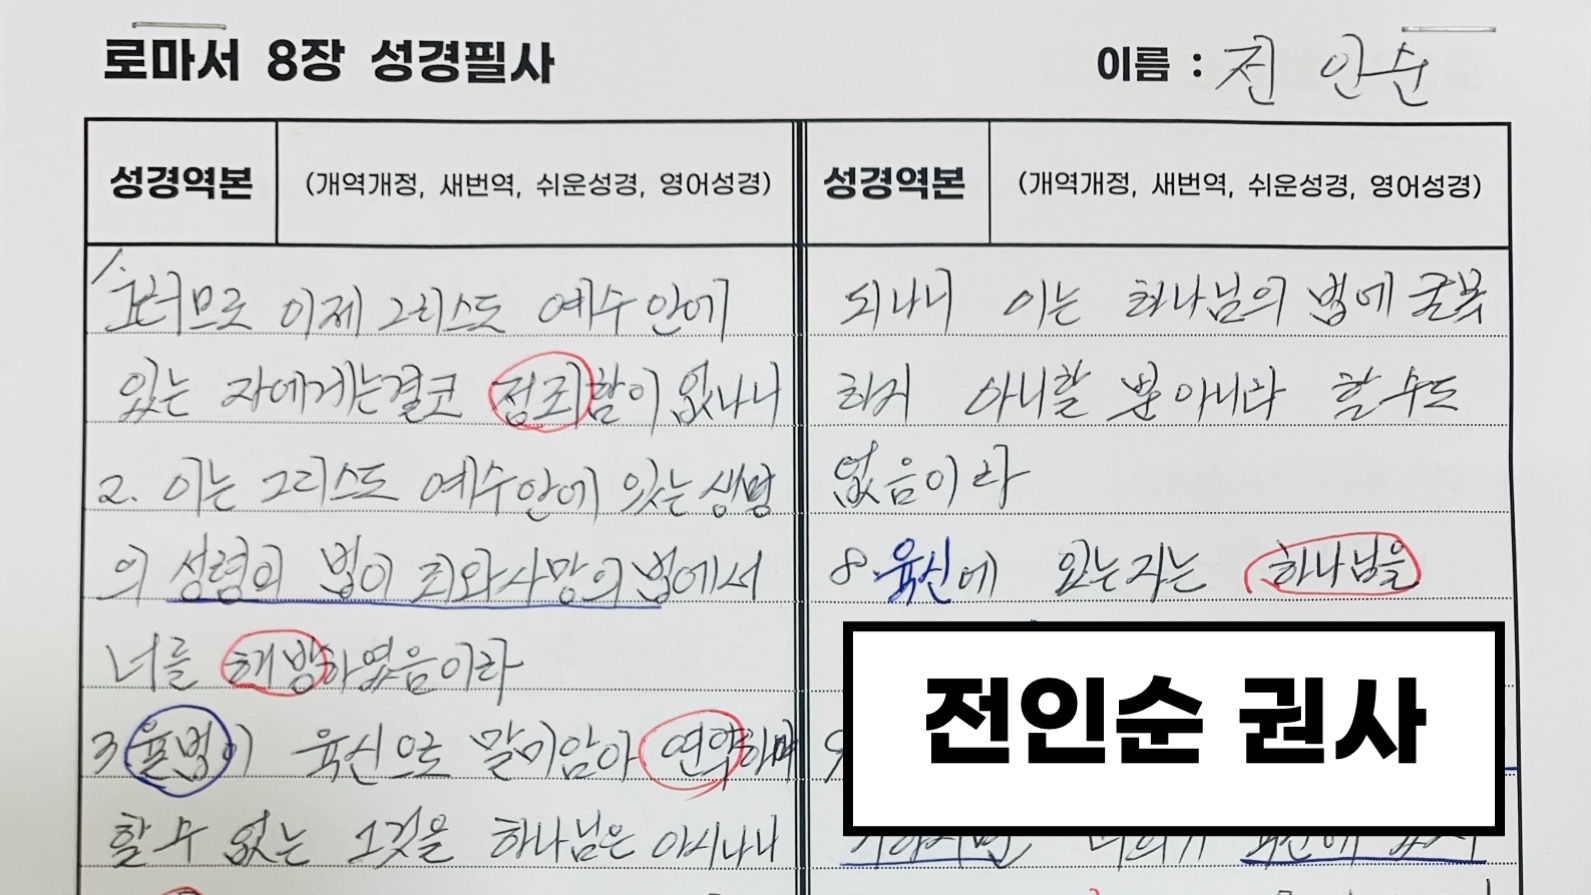 로마서 8장 성경필사
이름 : 전 인순
성경역본 (개역개정, 새번역, 쉬운성경, 영어성경)
1. 그러므로 이제 그리스도 예수 안에
있는 자에게는 결코 정죄함이 없나니
2. 이는 그리스도 예수 안에 있는 생명
의 성령의 법이 죄와 사망의 법에서
너를 해방하였음이라
3. 율법이 육신으로 말미암아 연약하며
할 수 없는 그것을 하나님은 하시나니
성경역본 (개역개정, 새번역, 쉬운성경, 영어성경)
되나니 이는 하나님의 법에 굴복
하지 아니할 뿐 아니라 할 수도
없음이라
8. 육신에 있는 자는 하나님을
9
전인순 권사